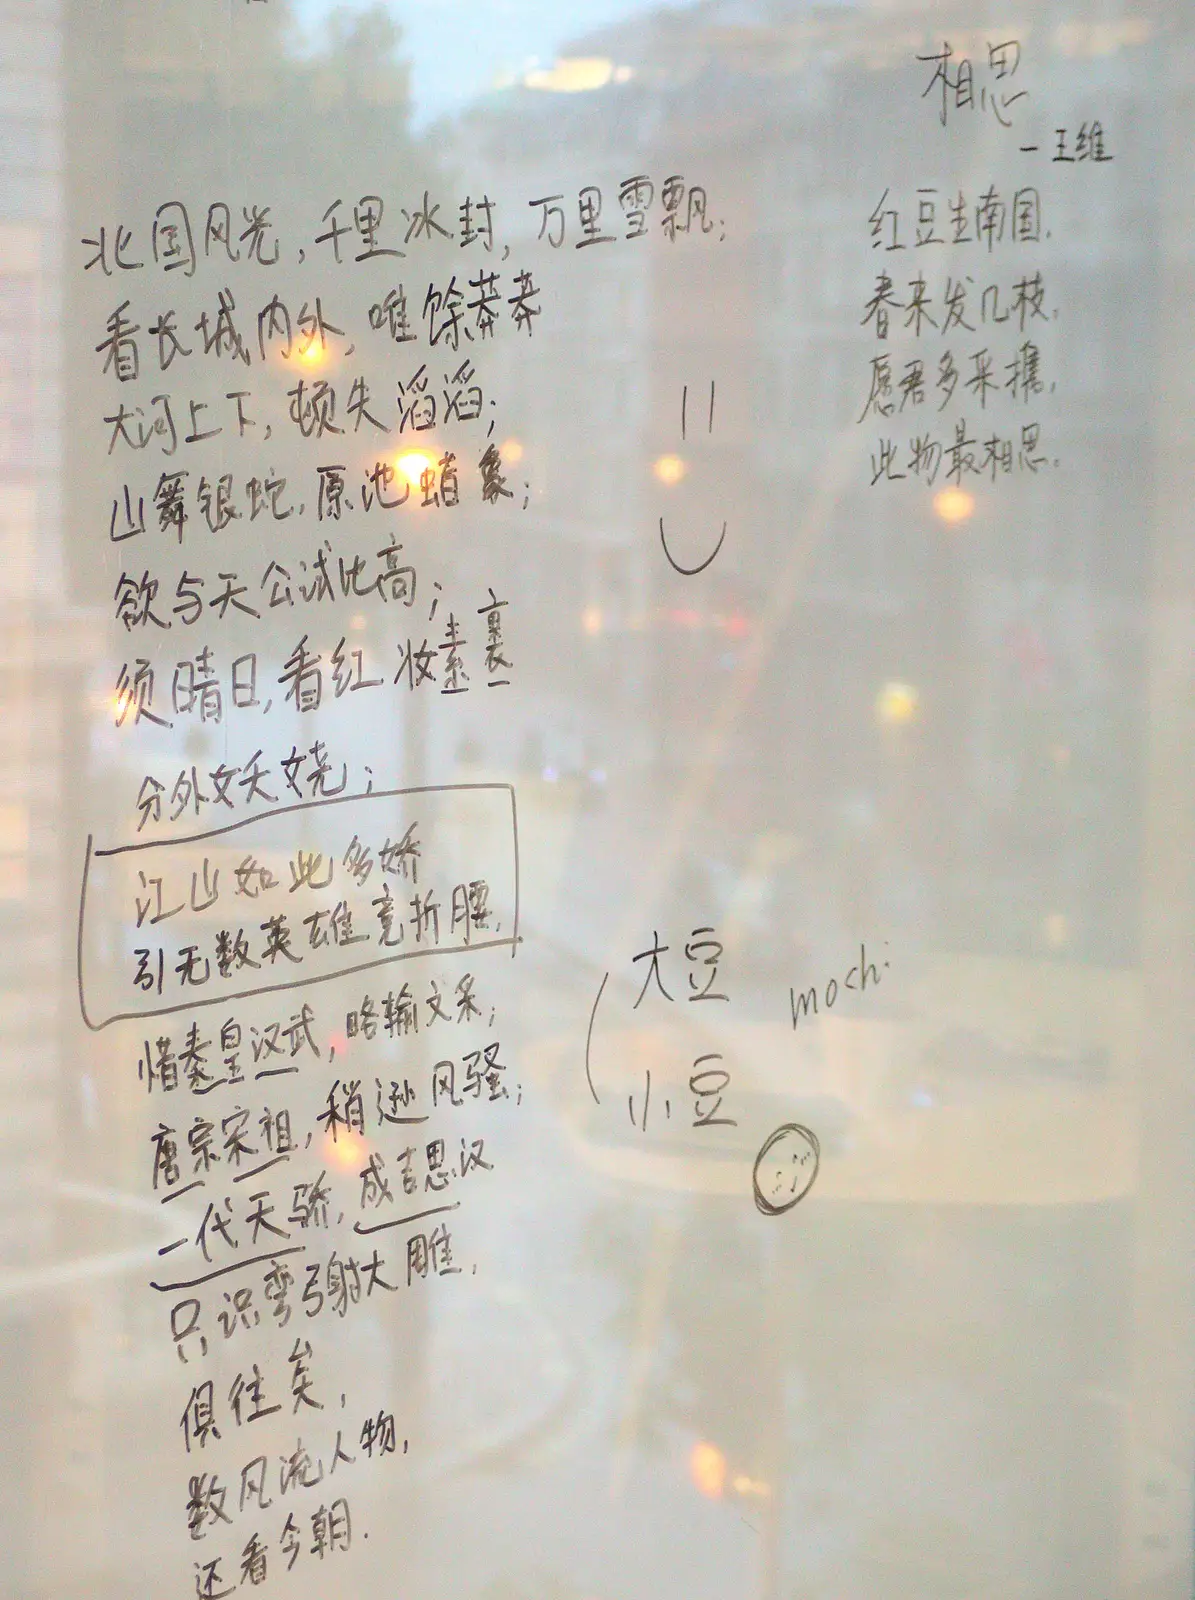 北国风光,千里冰封,万里雪飘;
看长城内外,唯馀莽莽
大河上下,顿失滔滔;
山舞银蛇,原池蜡象;
欲与天公试比高;
须晴日,看红妆素裹
分外妖娆;
江山如此多娇
引无数英雄竞折腰,
惜秦皇汉武,略输文采;
唐宗宋祖,稍逊风骚;
一代天骄,成吉思汉
只识弯弓射大雕,
俱往矣,
数风流人物,
还看今朝.
相思
-王维
红豆生南国,
春来发几枝,
愿君多采撷,
此物最相思.
大豆
mochi
小豆